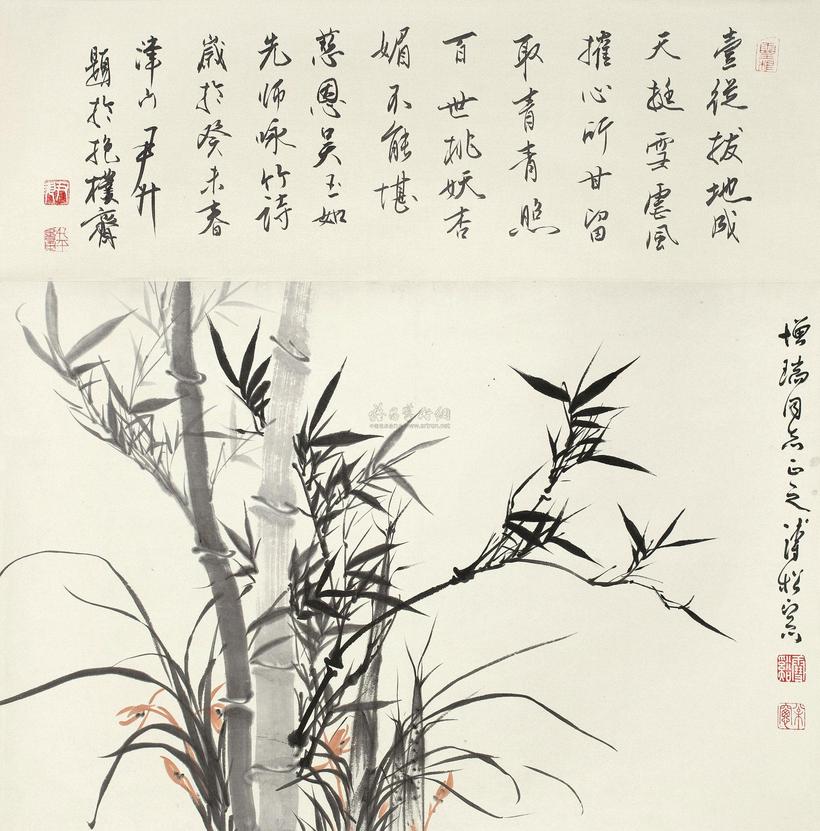 壹從拔地成
天挺雪虐風
摧心所甘留
取青青照
百世桃妖杏
媚不能堪
慈恩吴玉如
先师咏竹詩
嵗於癸未春
津門尹升
題於抱樸齋
增瑞同志正之溥松窗
www.artron.net